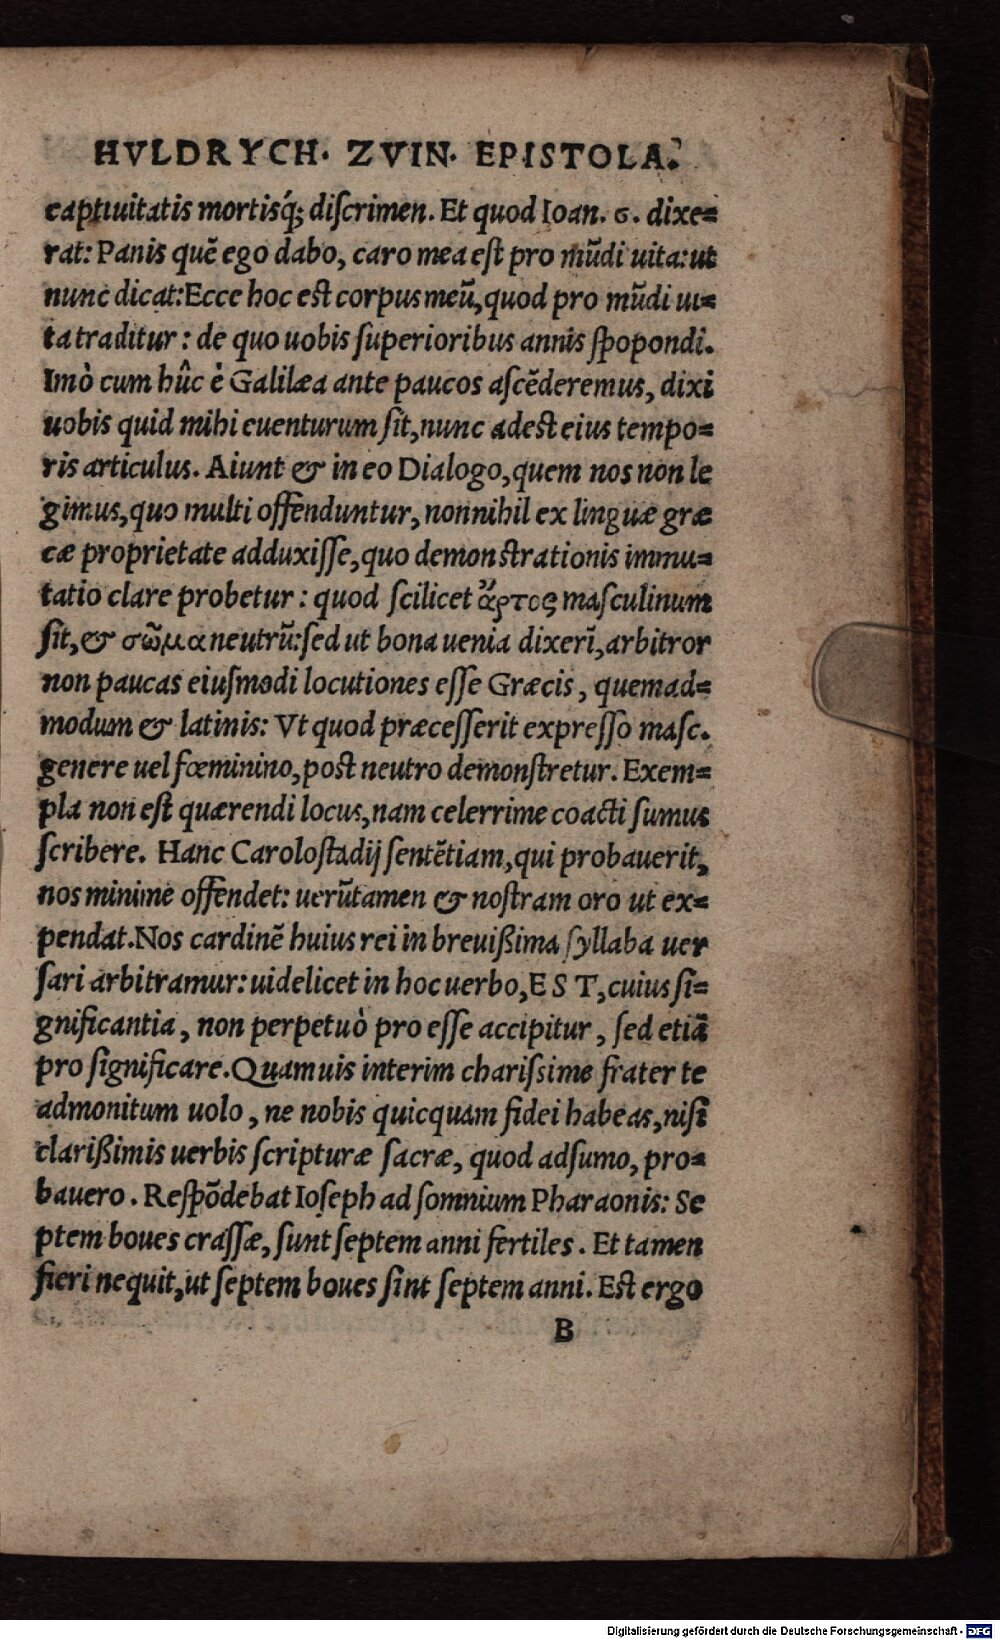 HVLDRYCH. ZVIN. EPISTOLA.
captiuitatis mortisq́; diſcrimen. Et quod Ioan. 6. dixe=
rat: Panis quẽ ego dabo, caro mea eſt pro mũdi uita: ut
nunc dicat: Ecce hoc eſt corpus meũ, quod pro mũdi ui=
ta traditur: de quo uobis ſuperioribus annis ſpopondi.
Imò cum hûc è Galilæa ante paucos aſcẽderemus, dixi
uobis quid mihi euenturum ſit, nunc adeſt eius tempo=
ris articulus. Aiunt & in eo Dialogo, quem nos non le
gimus, quo multi offenduntur, nonnihil ex linguæ græ
cæ proprietate adduxiſſe, quo demonſtrationis immu=
tatio clare probetur: quod ſcilicet ἄρτος maſculinum
ſit, & σῶμα neutrũ: ſed ut bona uenia dixerĩ, arbitror
non paucas eiuſmodi locutiones eſſe Græcis, quemad=
modum & latinis: Vt quod præceſſerit expreſſo maſc.
genere uel fœminino, poſt neutro demonſtretur. Exem=
pla non eſt quærendi locus, nam celerrime coacti ſumus
ſcribere. Hanc Caroloſtadij ſentẽtiam, qui probauerit,
nos minime offendet: uerũtamen & noſtram oro ut ex=
pendat. Nos cardinẽ huius rei in breuißima ſyllaba uer
ſari arbitramur: uidelicet in hoc uerbo, EST, cuius ſi=
gnificantia, non perpetuò pro eſſe accipitur, ſed etiã
pro ſignificare. Quamuis interim chariſsime frater te
admonitum uolo, ne nobis quicquam fidei habeas, niſi
clarißimis uerbis ſcripturæ ſacræ, quod adſumo, pro=
bauero. Reſpõdebat Ioſeph ad ſomnium Pharaonis: Se
ptem boues craſſæ, ſunt ſeptem anni fertiles. Et tamen
fieri nequit, ut ſeptem boues ſint ſeptem anni. Eſt ergo
B
Digitalisierung gefördert durch die Deutsche Forschungsgemeinschaft - DFG